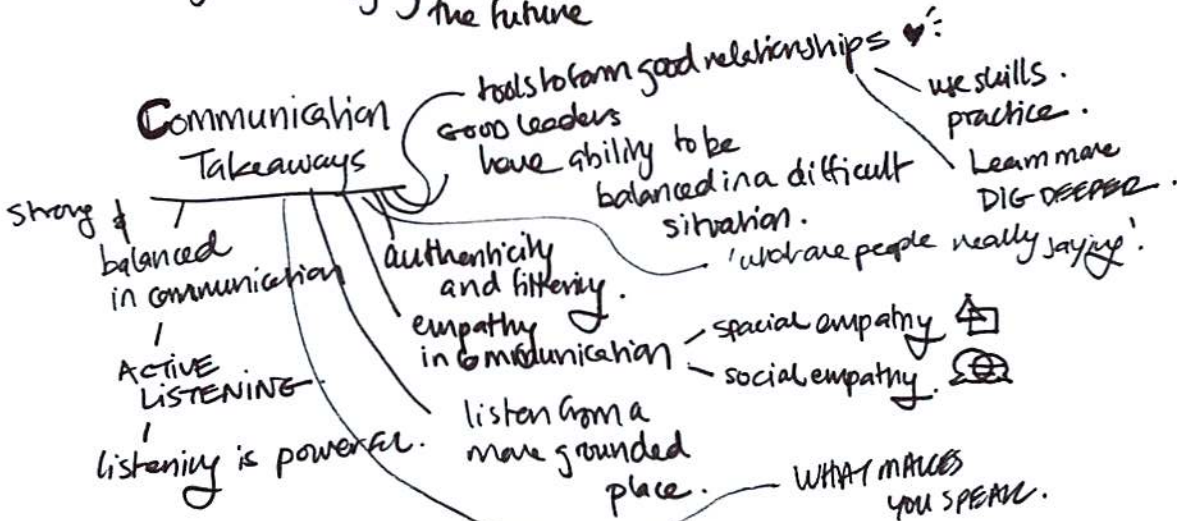 the future
Communication
Takeaways
tools to form good relationships
use skills.
practice.
Learn more
DIG DEEPER.
GOOD leaders
have ability to be
balanced in a difficult
situation.
'what are people really saying'.
strong &
balanced
in communication
ACTIVE
LISTENING
listening is powerful.
authenticity
and filtering.
empathy
in communication
spacial empathy
social empathy.
listen from a
more grounded
place.
WHAT MAKES
YOU SPEAK.